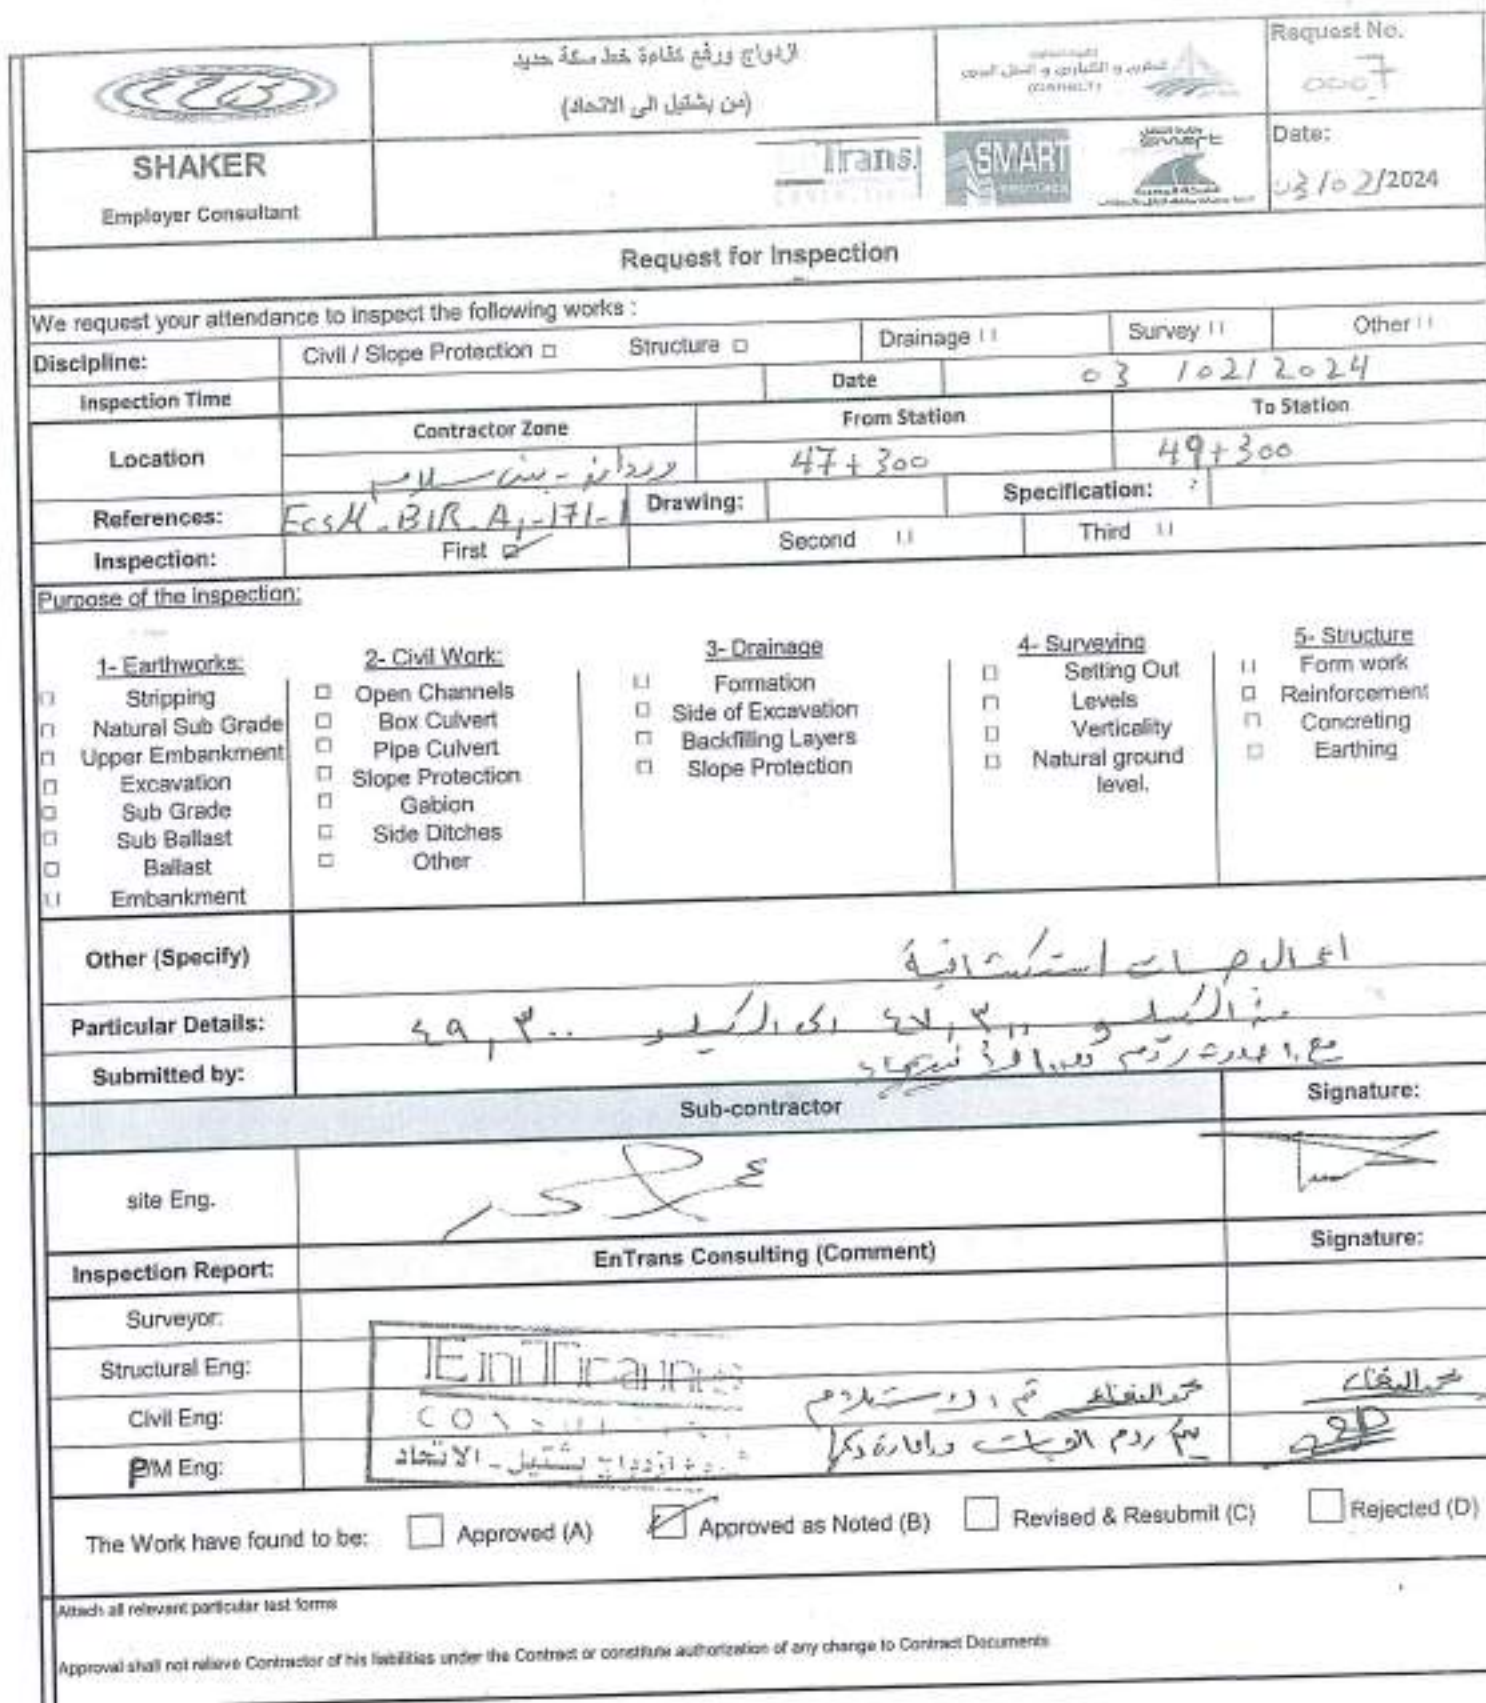 ازدواج ورفع كفاءة خط سكة حديد
(من بشتيل الى الاتحاد)
Request No.
0007
SHAKER
Employer Consultant
EnTrans.
SMART
Date:
03/02/2024
Request for Inspection
We request your attendance to inspect the following works :
Discipline: Civil / Slope Protection □ Structure □ Drainage Survey Other
Inspection Time Date 03/02/2024
Location Contractor Zone From Station To Station
وردان - بنى سلامه 47+300 49+300
References: EcsM-BIR-A1-171-1 Drawing: Specification:
Inspection: First ☑ Second Third
Purpose of the inspection:
1- Earthworks:
□ Stripping
□ Natural Sub Grade
□ Upper Embankment
□ Excavation
□ Sub Grade
□ Sub Ballast
□ Ballast
□ Embankment
2- Civil Work:
□ Open Channels
□ Box Culvert
□ Pipe Culvert
□ Slope Protection
□ Gabion
□ Side Ditches
□ Other
3- Drainage
□ Formation
□ Side of Excavation
□ Backfilling Layers
□ Slope Protection
4- Surveying
□ Setting Out
□ Levels
□ Verticality
□ Natural ground
level.
5- Structure
□ Form work
□ Reinforcement
□ Concreting
□ Earthing
Other (Specify) اعمال جسات استكشافية
Particular Details: من الكيلو ٤٧,٣٠٠ الى الكيلو ٤٩,٣٠٠
Submitted by:
Sub-contractor Signature:
site Eng.
Inspection Report: EnTrans Consulting (Comment) Signature:
Surveyor:
Structural Eng:
EnTrans
Civil Eng: تم الاستلام
P/M Eng: ازدواج بشتيل - الاتحاد
The Work have found to be: □ Approved (A) ☑ Approved as Noted (B) □ Revised & Resubmit (C) □ Rejected (D)
Attach all relevant particular test forms
Approval shall not relieve Contractor of his liabilities under the Contract or constitute authorization of any change to Contract Documents